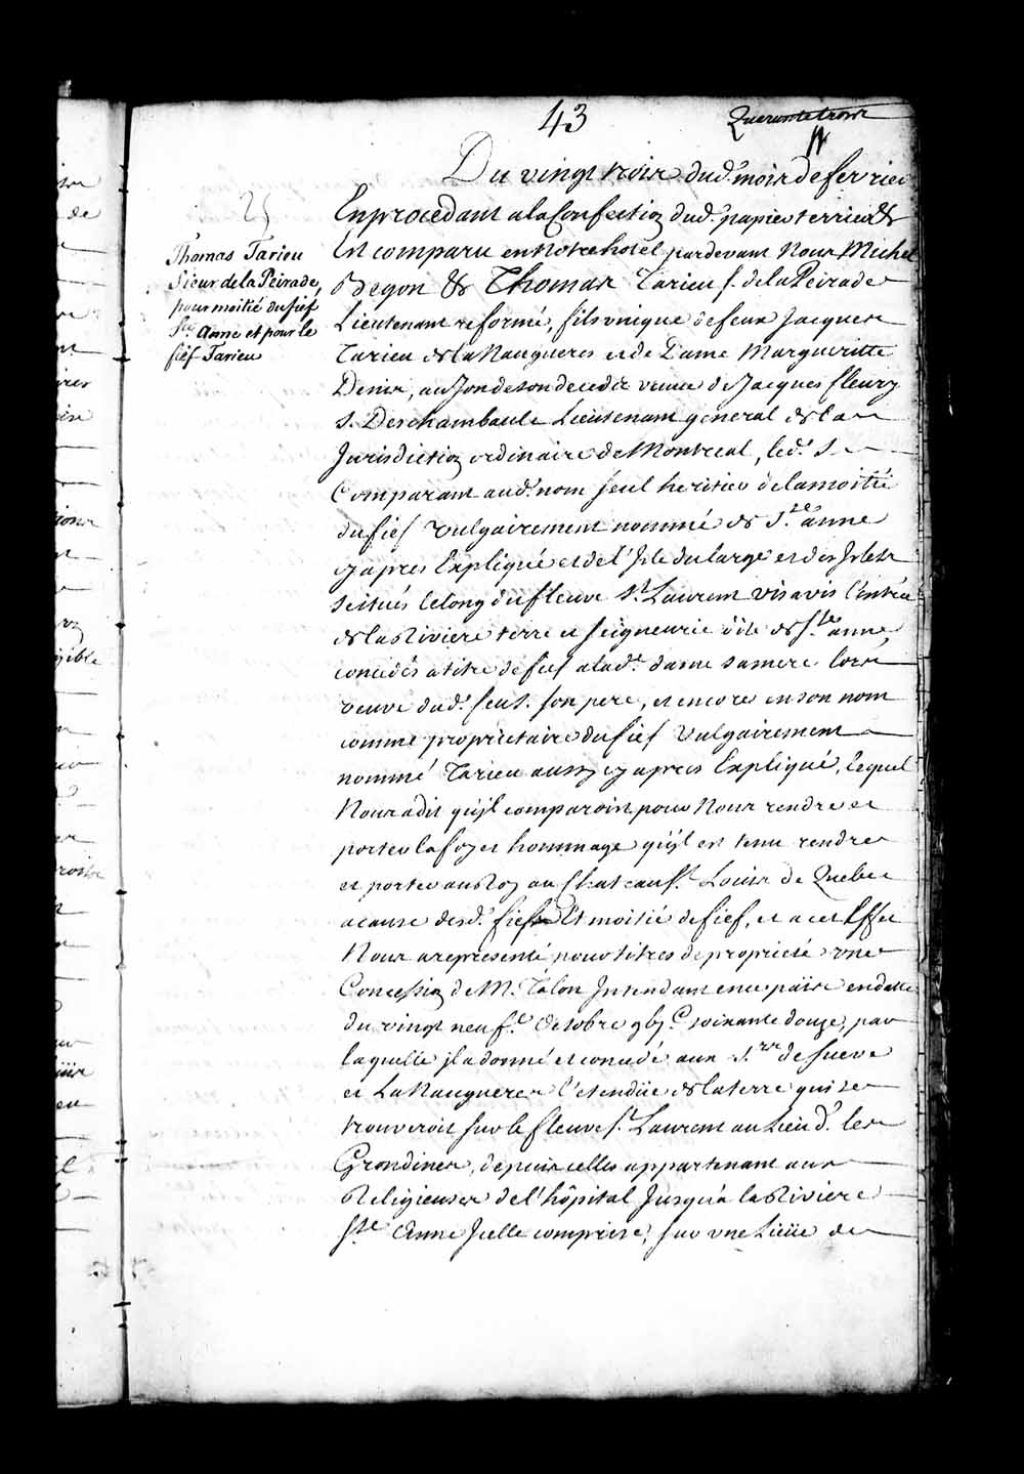 43
Quarante trois
Du vingt trois dud. mois de fevrier
En procedant a la Confection dud. papier terrier &
Est comparu en Notre hotel pardevant Nous Michel
Begon &c Thomas Tarieu s. de la Peirade
Lieutenant reformé, fils unique de feux Jacques
Tarieu de la Naugueres et de Dame Margueritte
Denis, au Jour de son decedz veuve de Jacques fleury
s. Deschambault Lieutenant general de la
Jurisdiction ordinaire de Montreal, led. s.
Comparant aud. nom seul heritier de la moitié
du fief vulgairement nommé de S.te anne
cy apres Expliqué et de l'Isle du large et des Isles
scitués le long du fleuve St. Laurent vis a vis l'entrée
de la Riviere terre et seigneurie dite de S.te anne
concedés a titre de fief a lad. dame sa mere lors
veuve dud. feu s. son pere, et encores en son nom
comme proprietaire du fief vulgairement
nommé Tarieu aussy cy apres Expliqué, lequel
Nous a dit qu'jl comparoist pour Nous rendre et
porter la foy et hommage qu'jl est tenu rendre
et porter au Roy au Chateau St. Louis de Quebec
a cause desd. fiefs Et moitié de fief, et a cet Effet
Nous a representé pour titres de proprieté une
Concession de M. Talon Intendant en ce païs en datte
du vingt neuf.e Octobre gbj.C soixante douze, par
laquelle jl a donné et concedé aux S.rs de sueve
et La Naugueres l'etendüe de la terre qui se
trouveroit sur le fleuve St. Laurent au Lieu d. les
Grondines, depuis celles appartenant aux
Religieuses de l'hôpital Jusqu'a la Riviere
Ste Anne Jcelle comprise, sur vne Lieüe de
Thomas Tarieu
Sieur de la Peirade,
pour moitié du fief
Ste. Anne et pour le
fief Tarieu